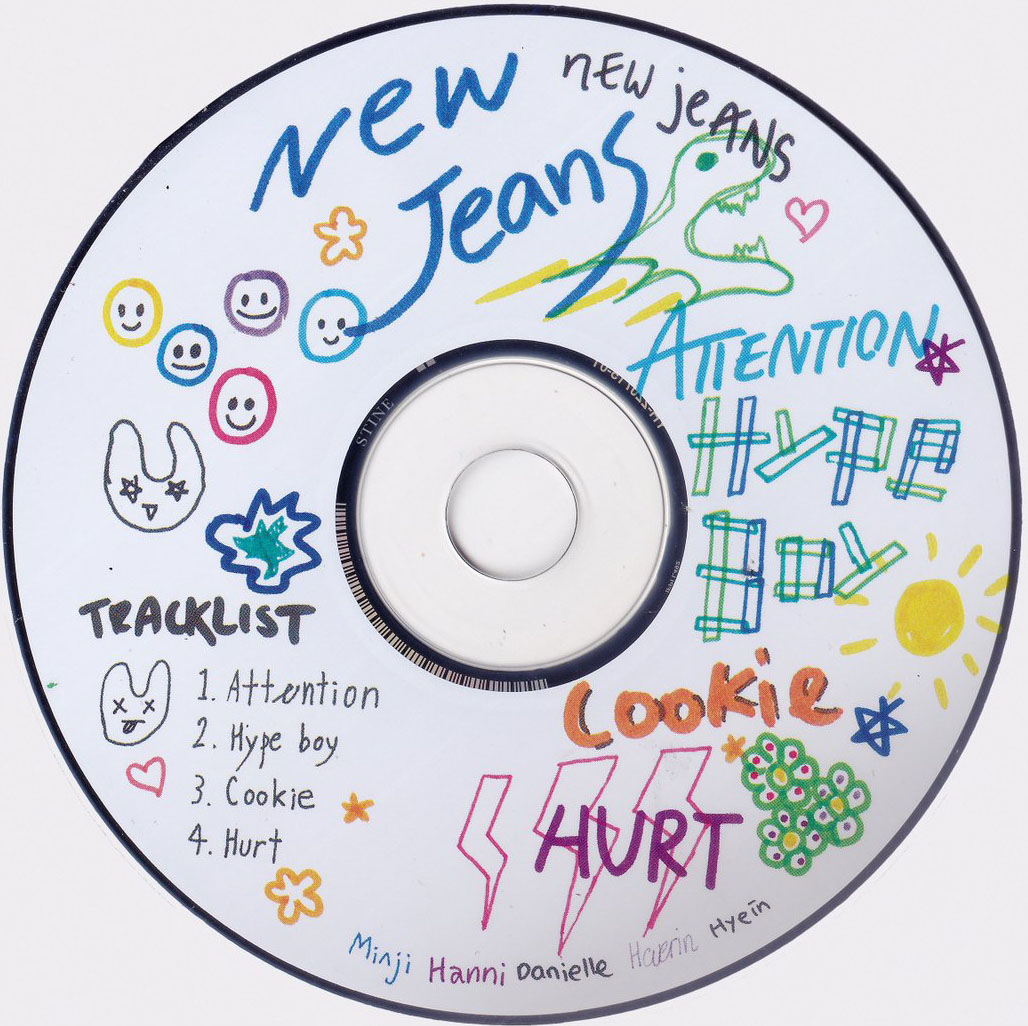 New
Jeans
NEW jEANS
ATTENTION
HYPE
BOY
COOKiE
HURT
TRACKLIST
1. Attention
2. Hype boy
3. Cookie
4. Hurt
Minji Hanni Danielle Haerin Hyein
STINE